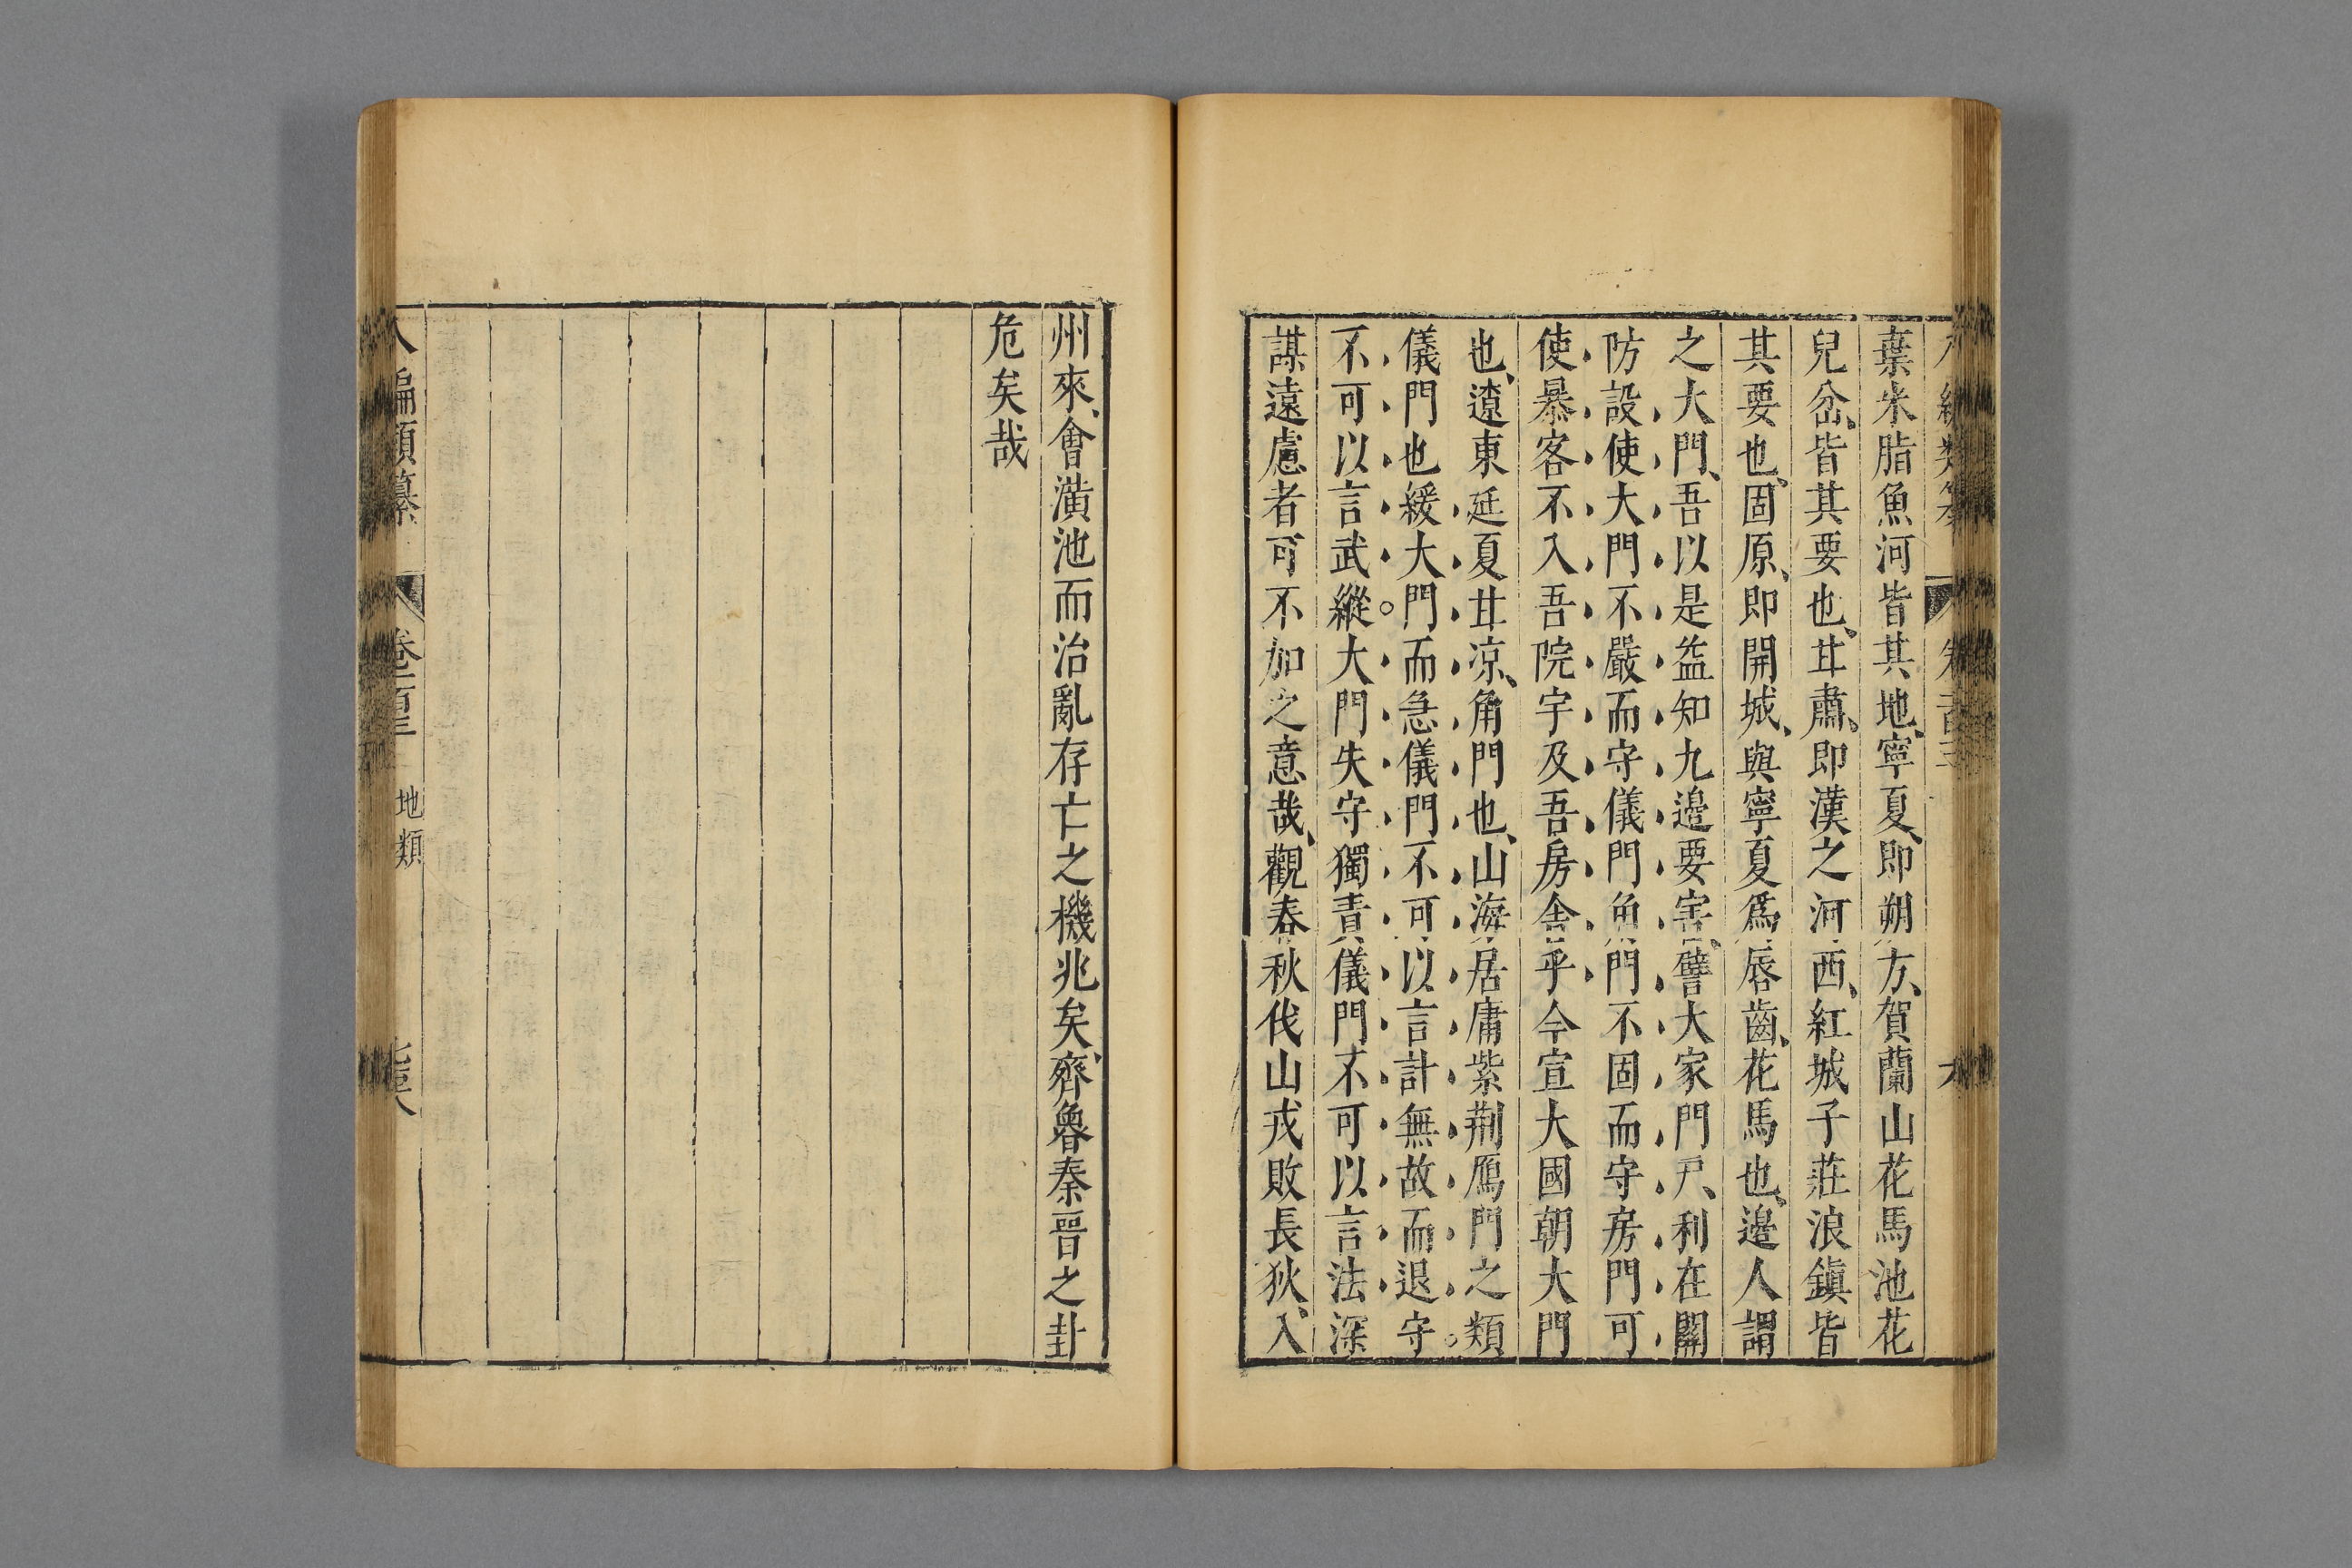 葉米脂魚河皆其地、寧夏、即朔方、賀蘭山花馬池花
兒岔、皆其要也、甘肅、即漢之河西、紅城子莊浪鎮皆
其要也、固原、即開城、與寧夏爲唇齒、花馬也、邊人謂
之大門、吾以是益知九邊要害、譬大家門戶、利在關
防設使大門不嚴而守儀門角門不固而守房門可
使暴客不入吾院宇及吾房舍乎今宣大國朝大門
也、遼東延夏甘凉、角門也、山海居庸紫荆鴈門之類
儀門也緩大門而急儀門不可以言計無故而退守
不可以言武縱大門失守獨責儀門不可以言法深
謀遠慮者可不加之意哉、觀春秋伐山戎敗長狄、入
州來、會潢池而治亂存亡之機兆矣、齊魯秦晉之封
危矣哉
八編類纂 卷一百三 地類